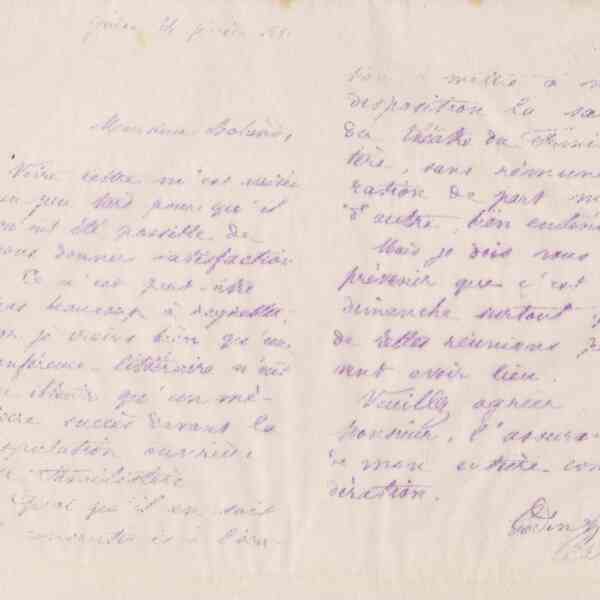 Monsieur
Votre lettre m'est arrivée
un peu tard pour qu'il
m'ait été possible de
vous donner satisfaction
Ce n'est peut-être
pas beaucoup à regretter,
car je crains bien qu'une
conférence littéraire n'eût
pu obtenir qu'un mé-
diocre succès devant la
population ouvrière
du Familistère
Quoi qu'il en soit
disposition la sa
du théâtre du Famil
tère, sans rémuné
ration de part ni
d'autre, bien entendu
Mais je dois vous
prévenir que c'est
dimanche surtout
de telles réunions
vent avoir lieu.
Veuillez agréer
Monsieur, l'assura
de mon entière con
dération.
Godin